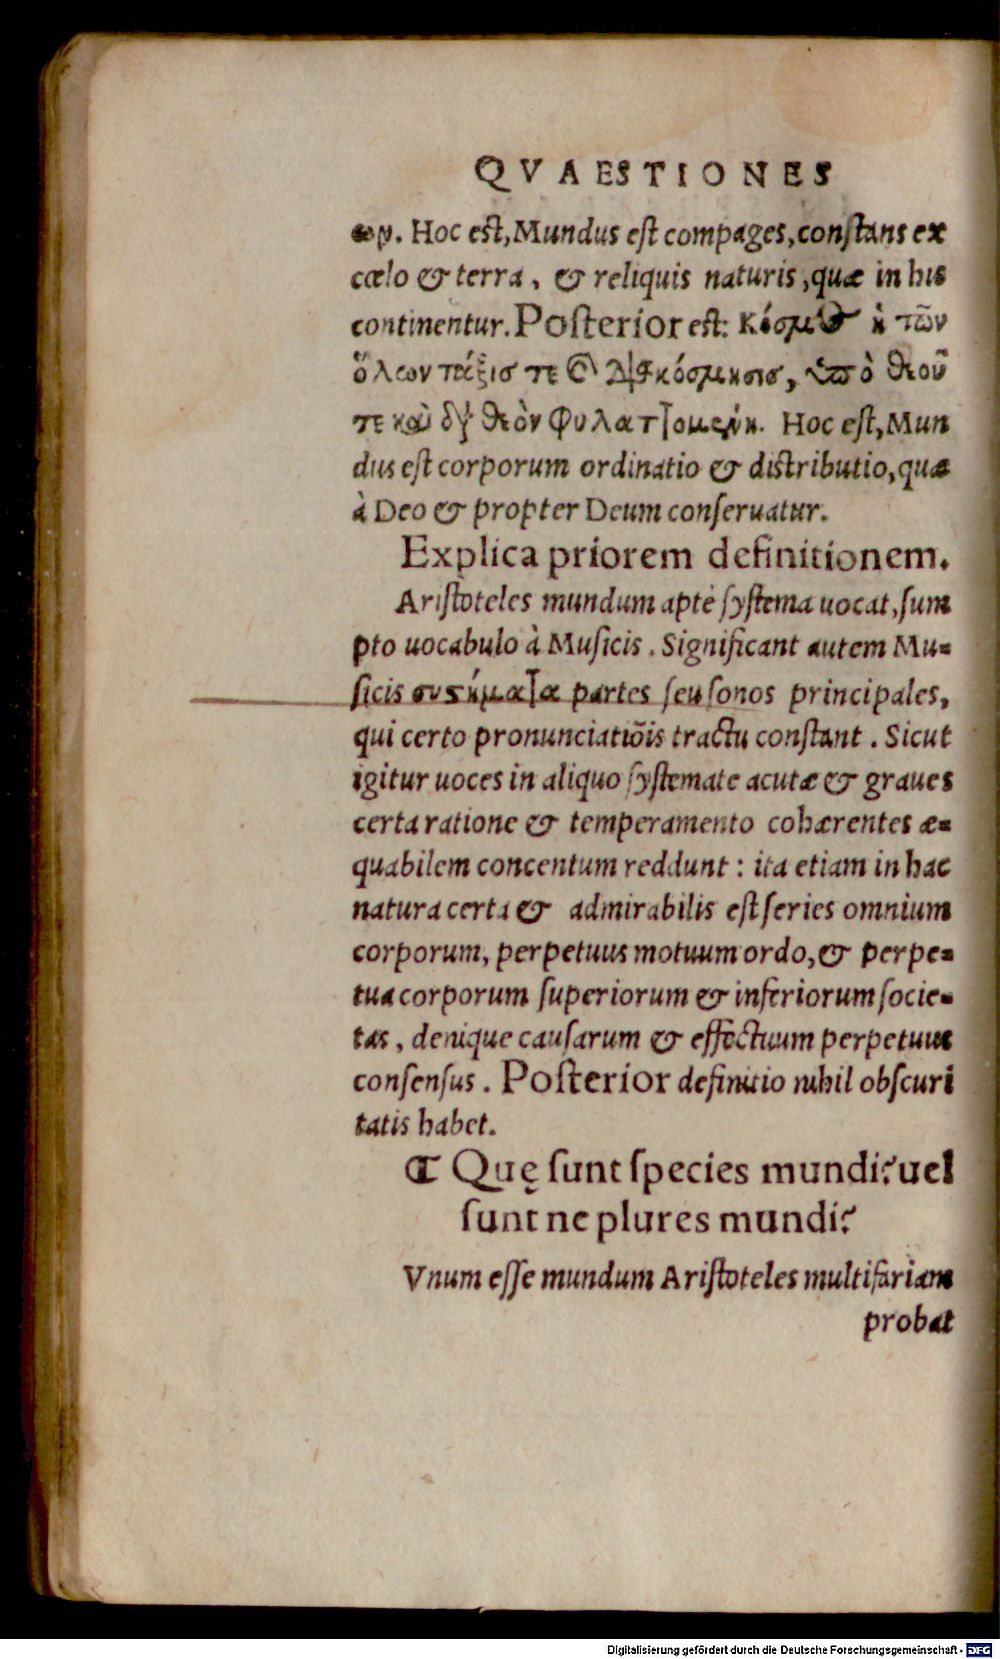 QVAESTIONES
ων. Hoc eſt, Mundus eſt compages, conſtans ex
cœlo & terra, & reliquis naturis, quæ in his
continentur. Poſterior est: Κόσμος ἡ τῶν
ὅλων τάξις τε καὶ διακόσμησις, ὑπὸ θεοῦ
τε καὶ διὰ θεὸν φυλαττομένη. Hoc eſt, Mun
dus eſt corporum ordinatio & distributio, quæ
à Deo & propter Deum conſeruatur.
Explica priorem definitionem.
Ariſtoteles mundum aptè ſyſtema uocat, ſum
pto uocabulo à Muſicis. Significant autem Mu-
ſicis συστήματα partes ſeu ſonos principales,
qui certo pronunciatiõis tractu conſtant. Sicut
igitur uoces in aliquo ſyſtemate acutæ & graues
certa ratione & temperamento cohærentes æ-
quabilem concentum reddunt: ita etiam in hac
natura certa & admirabilis eſt ſeries omnium
corporum, perpetuus motuum ordo, & perpe-
tua corporum ſuperiorum & inferiorum ſocie-
tas, denique cauſarum & effectuum perpetuus
conſenſus. Poſterior definitio nihil obſcuri
tatis habet.
❡ Quę ſunt ſpecies mundi? uel
ſunt ne plures mundi?
Vnum eſſe mundum Ariſtoteles multifariam
probat
Digitalisierung gefördert durch die Deutsche Forschungsgemeinschaft - DFG